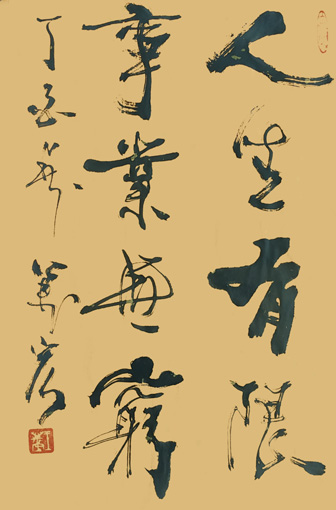 人生有限
事業無窮
丁亥